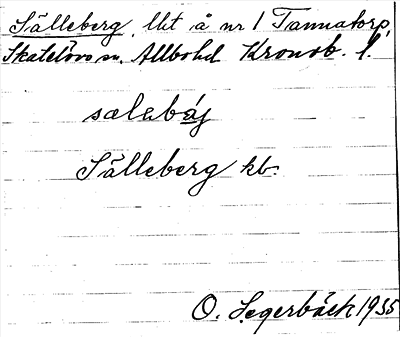 Sälleberg, lht å nr 1 Tannatorp,
Skatelövs sn. Allbo hd Kronob. l.
sælabæj
Sälleberg kb.
O. Segerbäck 1935